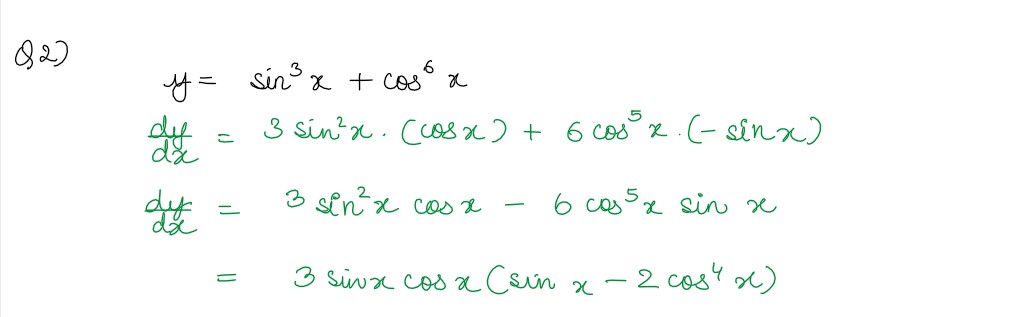 Q2)
y = sin³x + cos⁶x
dy/dx = 3 sin²x . (cosx) + 6 cos⁵x . (- sinx)
dy/dx = 3 sin²x cosx - 6 cos⁵x sin x
= 3 sinx cosx (sin x - 2 cos⁴x)